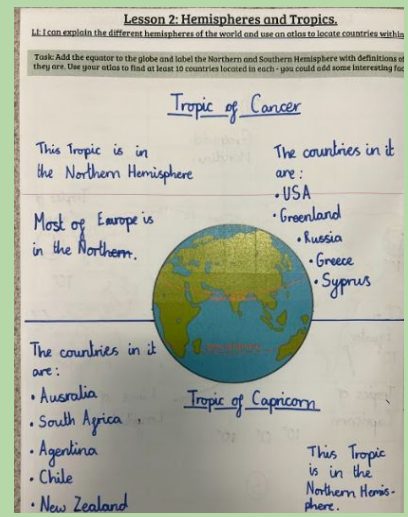 Lesson 2: Hemispheres and Tropics.
LI: I can explain the different hemispheres of the world and use an atlas to locate countries within
Task: Add the equator to the globe and label the Northern and Southern Hemisphere with definitions of
they are. Use your atlas to find at least 10 countries located in each - you could add some interesting fac
Tropic of Cancer
This Tropic is in
the Northern Hemisphere
Most of Europe is
in the Northern.
The countries in it
are:
• USA
• Greenland
• Russia
• Greece
• Syprus
The countries in it
are:
• Ausralia
• South Africa
• Agentina
• Chile
• New Zealand
Tropic of Capricorn
This Tropic
is in the
Northern Hemis-
phere.